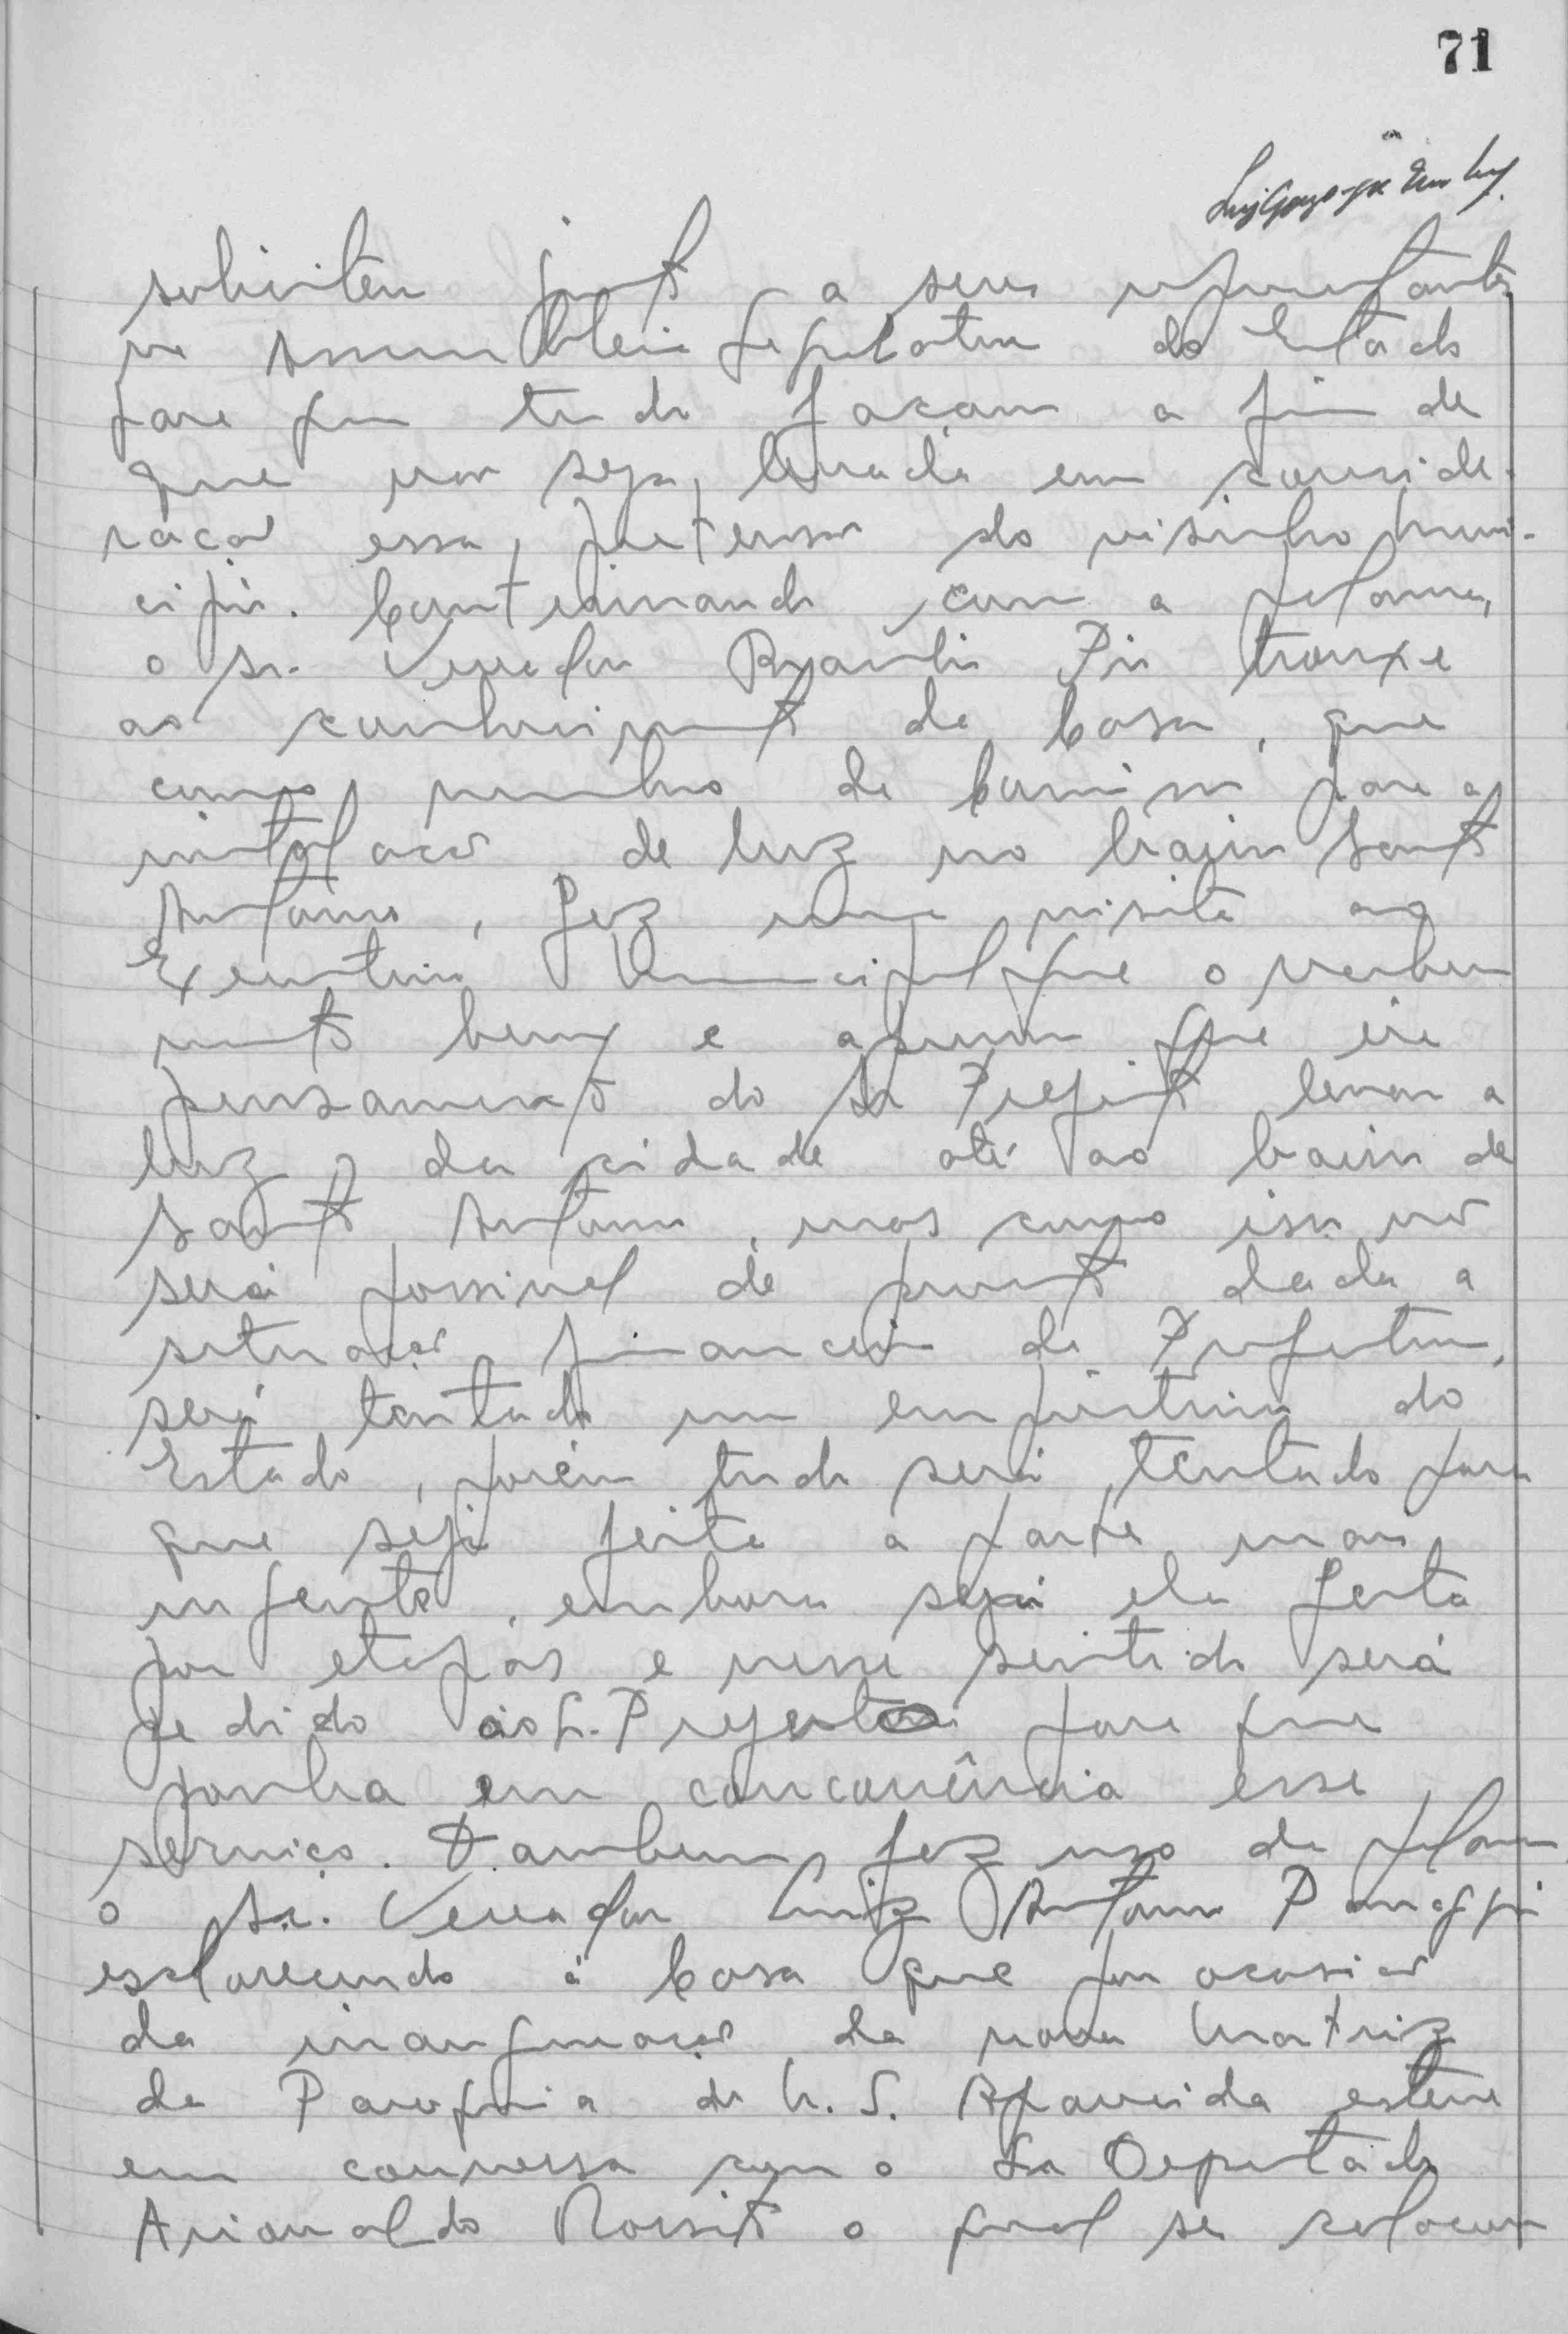 71
solicitem junto a seus representantes
na Assembleia Legislativa do Estado
para que tudo façam a fim de
que não seja levada em conside-
ração essa pretensão do visinho muni-
cipio. Continuando com a palavra,
o sr. Vereador Braulio Pio trouxe
ao conhecimento da Casa, que
como membro da Comissão para a
instalação de luz no bairro Santo
Antonio, fez uma visita ao
Executivo Municipal que o recebeu
muito bem e afirmou que era
pensamento do Sr Prefeito levar a
luz da cidade até ao bairro de
Santo Antonio, mas como isso não
será possivel de pronto dada a
situação financeira da Prefeitura,
será tentado um empréstimo do
Estado, porém tudo será tentado para
que seja feita a parte mais
urgente, embora seja ela feita
por etapas e nesse sentido será
pedido ao sr. Prefeito para que
ponha em concorrência esse
serviço. Tambem fez uso da palavra
o sr. Vereador Luiz Antonio
esclarecendo á Casa que por ocasião
da inauguração da nova Matriz
da Paroquia de N. S. Aparecida esteve
em conversa com o Sr Deputado
o qual se colocou